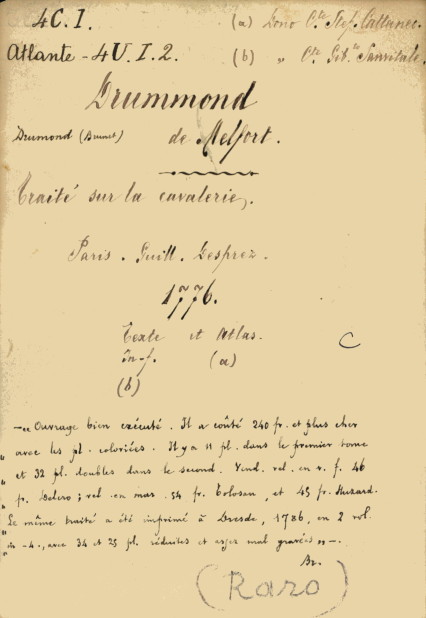 4C.I. (a) Dono C.te Stef. Cattaneo.
Atlante - 4U.I.2. (b) " C.te Gib.to Sanvitale.
Drummond
Drumond (Brunet) de Melfort.
Traité sur la cavalerie.
Paris. Guill. Desprez.
1776.
Texte et Atlas.
in-f. (a)
(b)
C
-«Ouvrage bien exécuté. Il a coûté 240 fr. et plus cher
" avec les pl. coloriées. Il y a 11 pl. dans le premier tome
" et 32 pl. doubles dans le second. Vend. rel. en v. f. 46
" fr. Delero; rel. en mar. 54 fr. Tolosan, et 45 fr. Huzard.
" Le même traité a été imprimé à Dresde, 1786, en 2 vol.
" in-4., avec 34 et 25 pl. réduites et assez mal gravées» -.
Br.
(Raro)